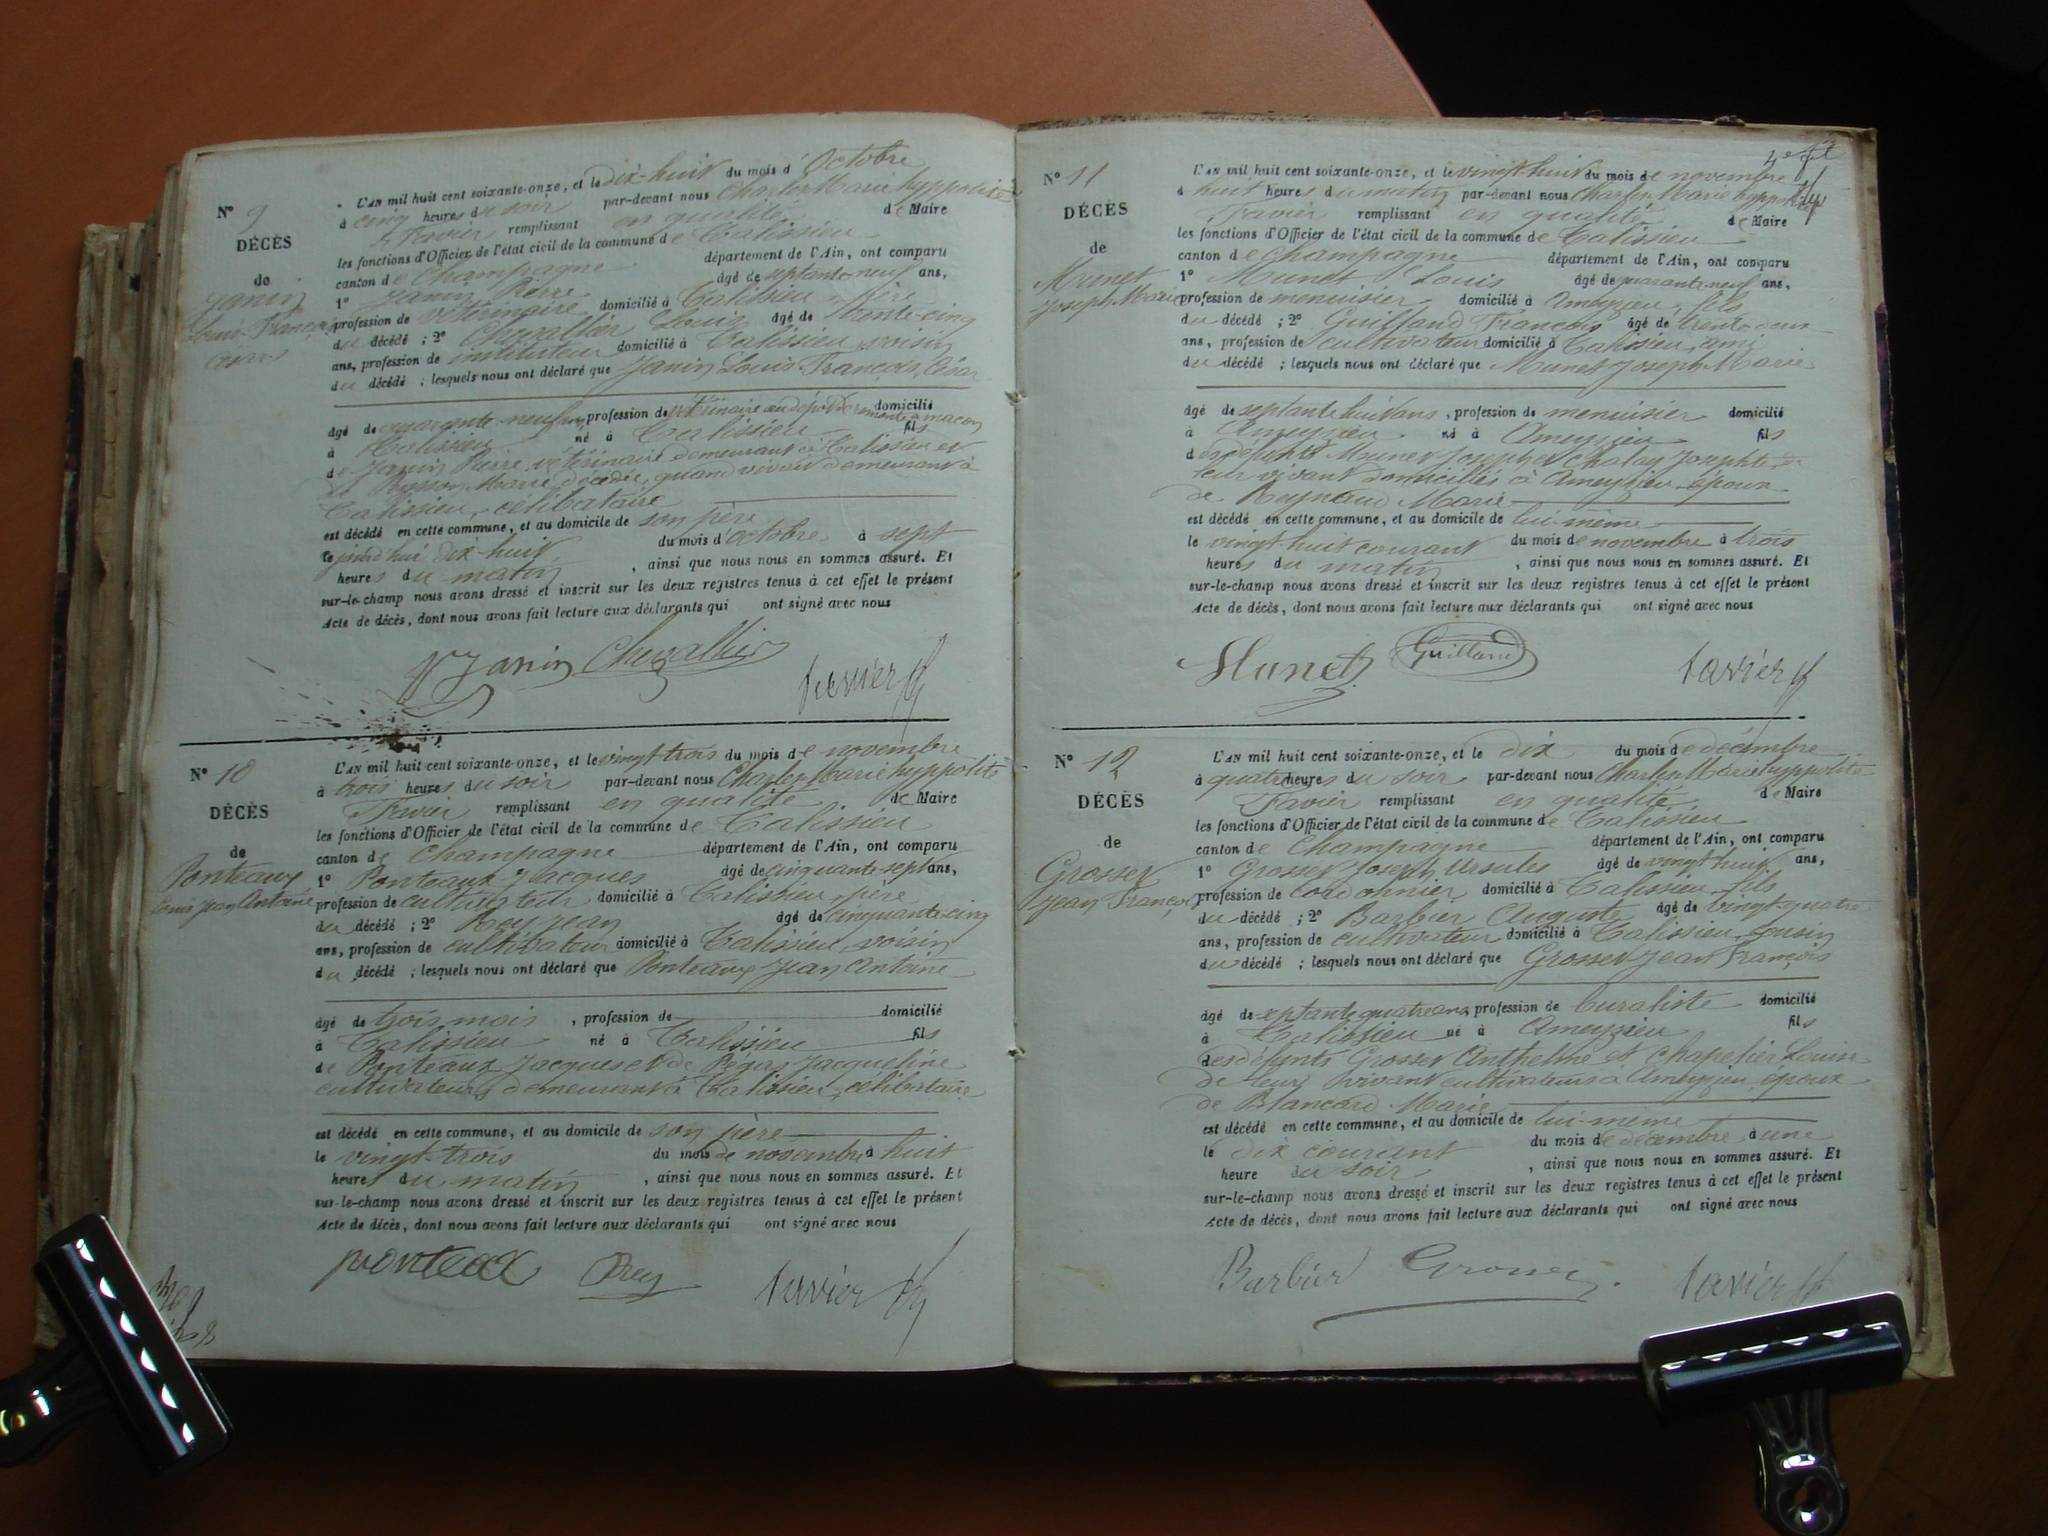 N° 9
DÉCÈS
de
Janin
Louis François
César
L'AN mil huit cent soixante-onze, et le dix-huit du mois d'Octobre
à cinq heures du soir par-devant nous Charles Marie hyppolite
Favier remplissant en qualité de Maire
les fonctions d'Officier de l'état civil de la commune de Talissieu
canton de Champagne département de l'Ain, ont comparu
1° Janin Pierre âgé de septante neuf ans,
profession de vétérinaire domicilié à Talissieu, père
du décédé ; 2° Chevallier Louis âgé de trente-cinq
ans, profession de instituteur domicilié à Talissieu, voisin
du décédé ; lesquels nous ont déclaré que Janin Louis François César
âgé de quarante-neuf ans, profession de vétérinaire au dépôt de remonte à macon domicilié
à Talissieu né à Talissieu fils
de Janin Pierre, vétérinaire demeurant à Talissieu et
de Bosson Marie décédée, quand vivait demeurant à
Talissieu, célibataire
est décédé en cette commune, et au domicile de son père
le jourd'hui dix-huit du mois d'octobre à sept
heures du matin , ainsi que nous nous en sommes assuré. Et
sur-le-champ nous avons dressé et inscrit sur les deux registres tenus à cet effet le présent
Acte de décès, dont nous avons fait lecture aux déclarants qui ont signé avec nous
Janin Chevallier favier
N° 10
DÉCÈS
de
Ponteaux
Louis Jean Antoine
L'AN mil huit cent soixante-onze, et le vingt-trois du mois de novembre
à trois heures du soir par-devant nous Charles Marie hyppolite
Favier remplissant en qualité de Maire
les fonctions d'Officier de l'état civil de la commune de Talissieu
canton de Champagne département de l'Ain, ont comparu
1° Ponteaux Jacques âgé de cinquante sept ans,
profession de cultivateur domicilié à Talissieu, père
du décédé ; 2° Rey Jean âgé de cinquante-cinq
ans, profession de cultivateur domicilié à Talissieu, voisin
du décédé ; lesquels nous ont déclaré que Ponteaux Jean Antoine
âgé de trois mois , profession de domicilié
à Talissieu né à Talissieu fils
de Ponteaux Jacques et de Jacqueline
cultivateurs demeurant à Talissieu, célibataire
est décédé en cette commune, et au domicile de son père
le vingt-trois du mois de novembre à huit
heures du matin , ainsi que nous nous en sommes assuré. Et
sur-le-champ nous avons dressé et inscrit sur les deux registres tenus à cet effet le présent
Acte de décès, dont nous avons fait lecture aux déclarants qui ont signé avec nous
ponteaux Rey favier
N° 11
DÉCÈS
de
Munet
Joseph Marie
L'AN mil huit cent soixante-onze, et le vingt huit du mois de novembre
à huit heures du matin par-devant nous Charles Marie hyppolite
Favier remplissant en qualité de Maire
les fonctions d'Officier de l'état civil de la commune de Talissieu
canton de champagne département de l'Ain, ont comparu
1° Munet Louis âgé de quarante neuf ans,
profession de menuisier domicilié à Ameyzieu, fils
du décédé ; 2° Guilland François âgé de trente deux
ans, profession de cultivateur domicilié à Talissieu, ami
du décédé ; lesquels nous ont déclaré que Munet Joseph Marie
âgé de septante huit ans , profession de menuisier domicilié
à Ameyzieu né à Ameyzieu fils
des défunts Munet Joseph et Chaley Josephte de
leur vivant domiciliés à Ameyzieu, époux
de Reynaud Marie
est décédé en cette commune, et au domicile de lui-même
le vingt-huit courant du mois de novembre à trois
heures du matin , ainsi que nous nous en sommes assuré. Et
sur-le-champ nous avons dressé et inscrit sur les deux registres tenus à cet effet le présent
Acte de décès, dont nous avons fait lecture aux déclarants qui ont signé avec nous
Munet Guilland favier
N° 12
DÉCÈS
de
Grosset
Jean François
L'AN mil huit cent soixante-onze, et le dix du mois de décembre
à quatre heures du soir par-devant nous Charles Marie hyppolite
Favier remplissant en qualité de Maire
les fonctions d'Officier de l'état civil de la commune de Talissieu
canton de Champagne département de l'Ain, ont comparu
1° Grosset Joseph Ursules âgé de vingt huit ans,
profession de cordonnier domicilié à Talissieu, fils
du décédé ; 2° Barbier Auguste âgé de vingt-quatre
ans, profession de cultivateur domicilié à Talissieu, cousin
du décédé ; lesquels nous ont déclaré que Grosset Jean François
âgé de septante quatre ans, profession de buraliste domicilié
à Talissieu né à Ameyzieu fils
des défunts Grosset Anthelme et Chapelier Louise
de leur vivant cultivateurs à Ameyzieu, époux
de Blancard Marie
est décédé en cette commune, et au domicile de lui-même
le dix courant du mois de décembre à une
heure du soir , ainsi que nous nous en sommes assuré. Et
sur-le-champ nous avons dressé et inscrit sur les deux registres tenus à cet effet le présent
Acte de décès, dont nous avons fait lecture aux déclarants qui ont signé avec nous
Barbier Grosset favier